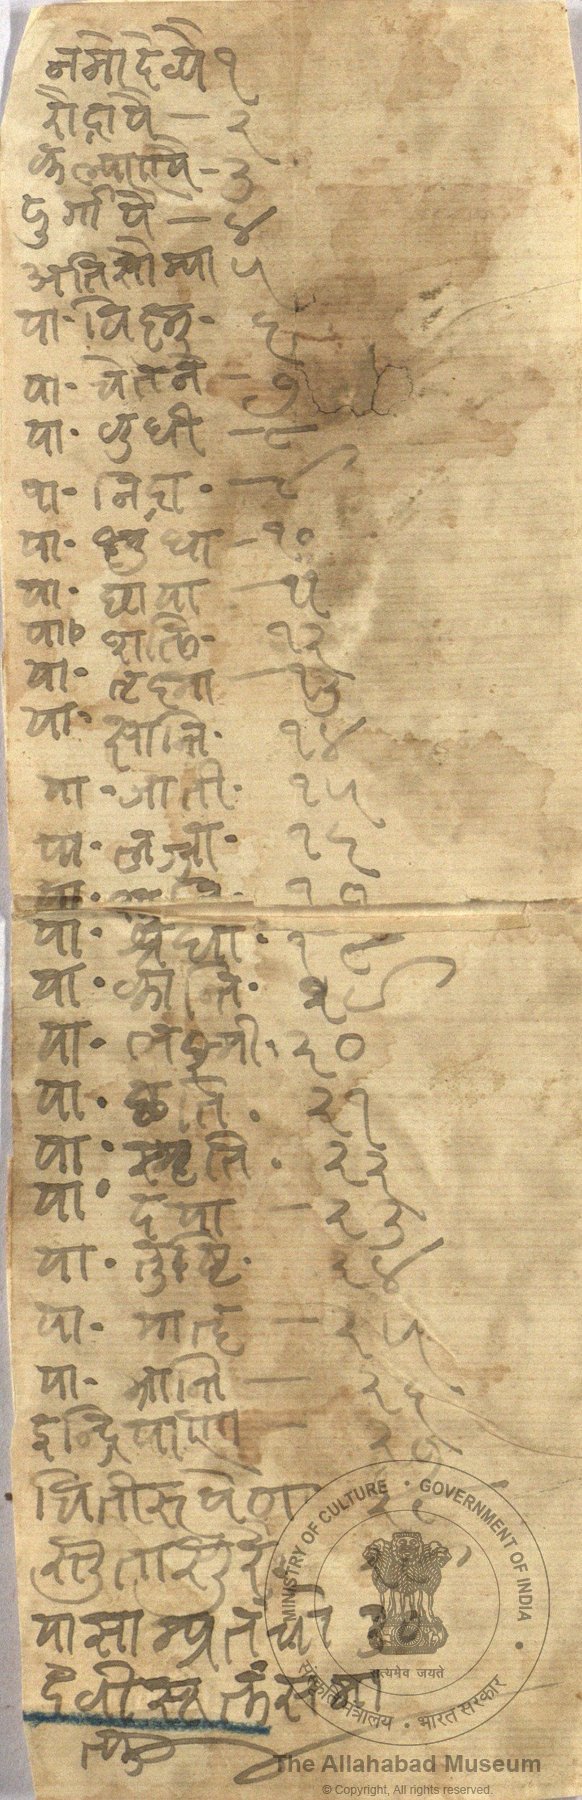 नमो देव्यै १
रौद्रायै — २
कल्याण्यै - ३
दुर्गायै — ४
अतिसौम्या ५
या - विष्नु - ६
या - चेतने - ७
या - बुधी - ८
या - निद्रा - ९
या - क्षुधा - १०
या - छाया - ११
या॰ शक्ति - १२
या - तृष्ना - १३
या - क्षान्ति - १४
या - जाती - १५
या - लज्जा - १६
या - १७
या - श्रधा - १८
या - कान्ति - १९
या - लक्ष्मी - २०
या - २१
या - स्मृति - २२
या - दया - २३
या - तुष्टि - २४
या - मातृ - २५
या - भ्रान्ति - २६
इन्द्रियाणा - २७
चितीरूपेण २८
स्तुतासुरै २९
या साम्प्रतं चो ३०
देवीसूक्तं
The Allahabad Museum
© Copyright, All rights reserved.
MINISTRY OF CULTURE · GOVERNMENT OF INDIA
संस्कृति मंत्रालय · भारत सरकार
सत्यमेव जयते